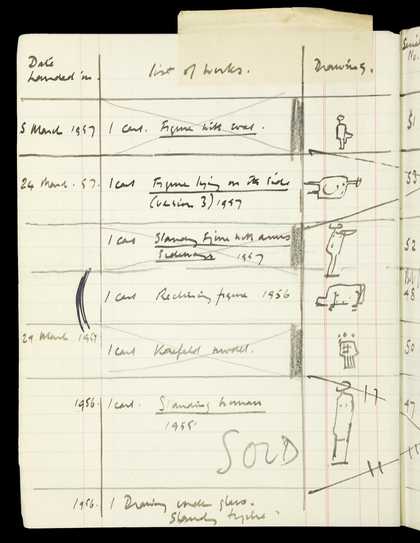 Date
handed in.
list of works.
Drawing.
5 March 1957
1 cast. Figure with coat.
51
24 March. 57.
1 cast Figure lying on its side
(version 3) 1957
53
1 cast Standing figure with arms
Sideways 1957
52
1 cast Reclining figure 1956
48
29 March 1957
1 cast Krefeld model.
50
1956.
1 cast. Standing woman
1955
47
SOLD
1956.
1 Drawing under glass.
Standing